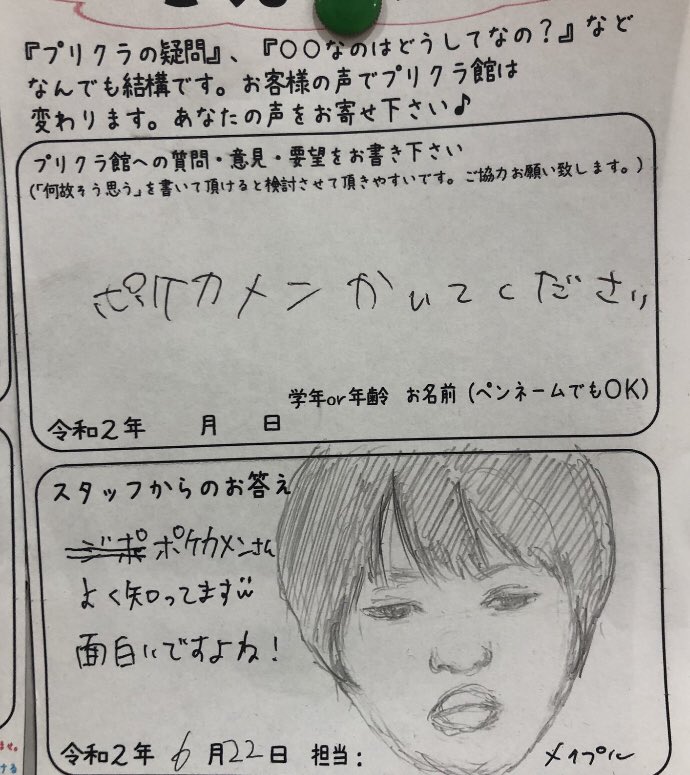 『プリクラの疑問』、『○○なのはどうしてなの？』など
なんでも結構です。お客様の声でプリクラ館は
変わります。あなたの声をお寄せ下さい♪
プリクラ館への質問・意見・要望をお書き下さい
(「何故そう思う」を書いて頂けると検討させて頂きやすいです。ご協力お願い致します。)
ポケカメン かいてください
学年or年齢 お名前 (ペンネームでもOK)
令和2年 月 日
スタッフからのお答え
ポケカメンさん
よく知ってます
面白いですよね！
令和2年 6月22日 担当： メイプル
ませ。
ける